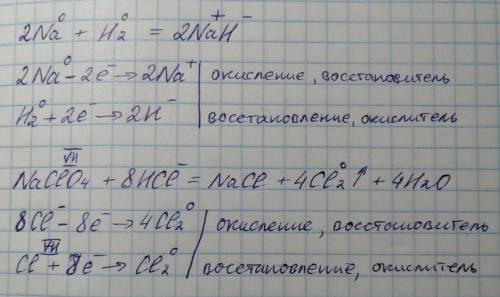 2Na⁰ + H₂⁰ = 2Na⁺H⁻
2Na⁰ - 2e⁻ → 2Na⁺ | окисление, восстановитель
H₂⁰ + 2e⁻ → 2H⁻ | восстановление, окислитель
VII
NaClO₄ + 8HCl⁻ = NaCl + 4Cl₂⁰↑ + 4H₂O
8Cl⁻ - 8e⁻ → 4Cl₂⁰ | окисление, восстановитель
Cl⁺ⱽᴵᴵ + 8e⁻ → Cl₂⁰ | восстановление, окислитель